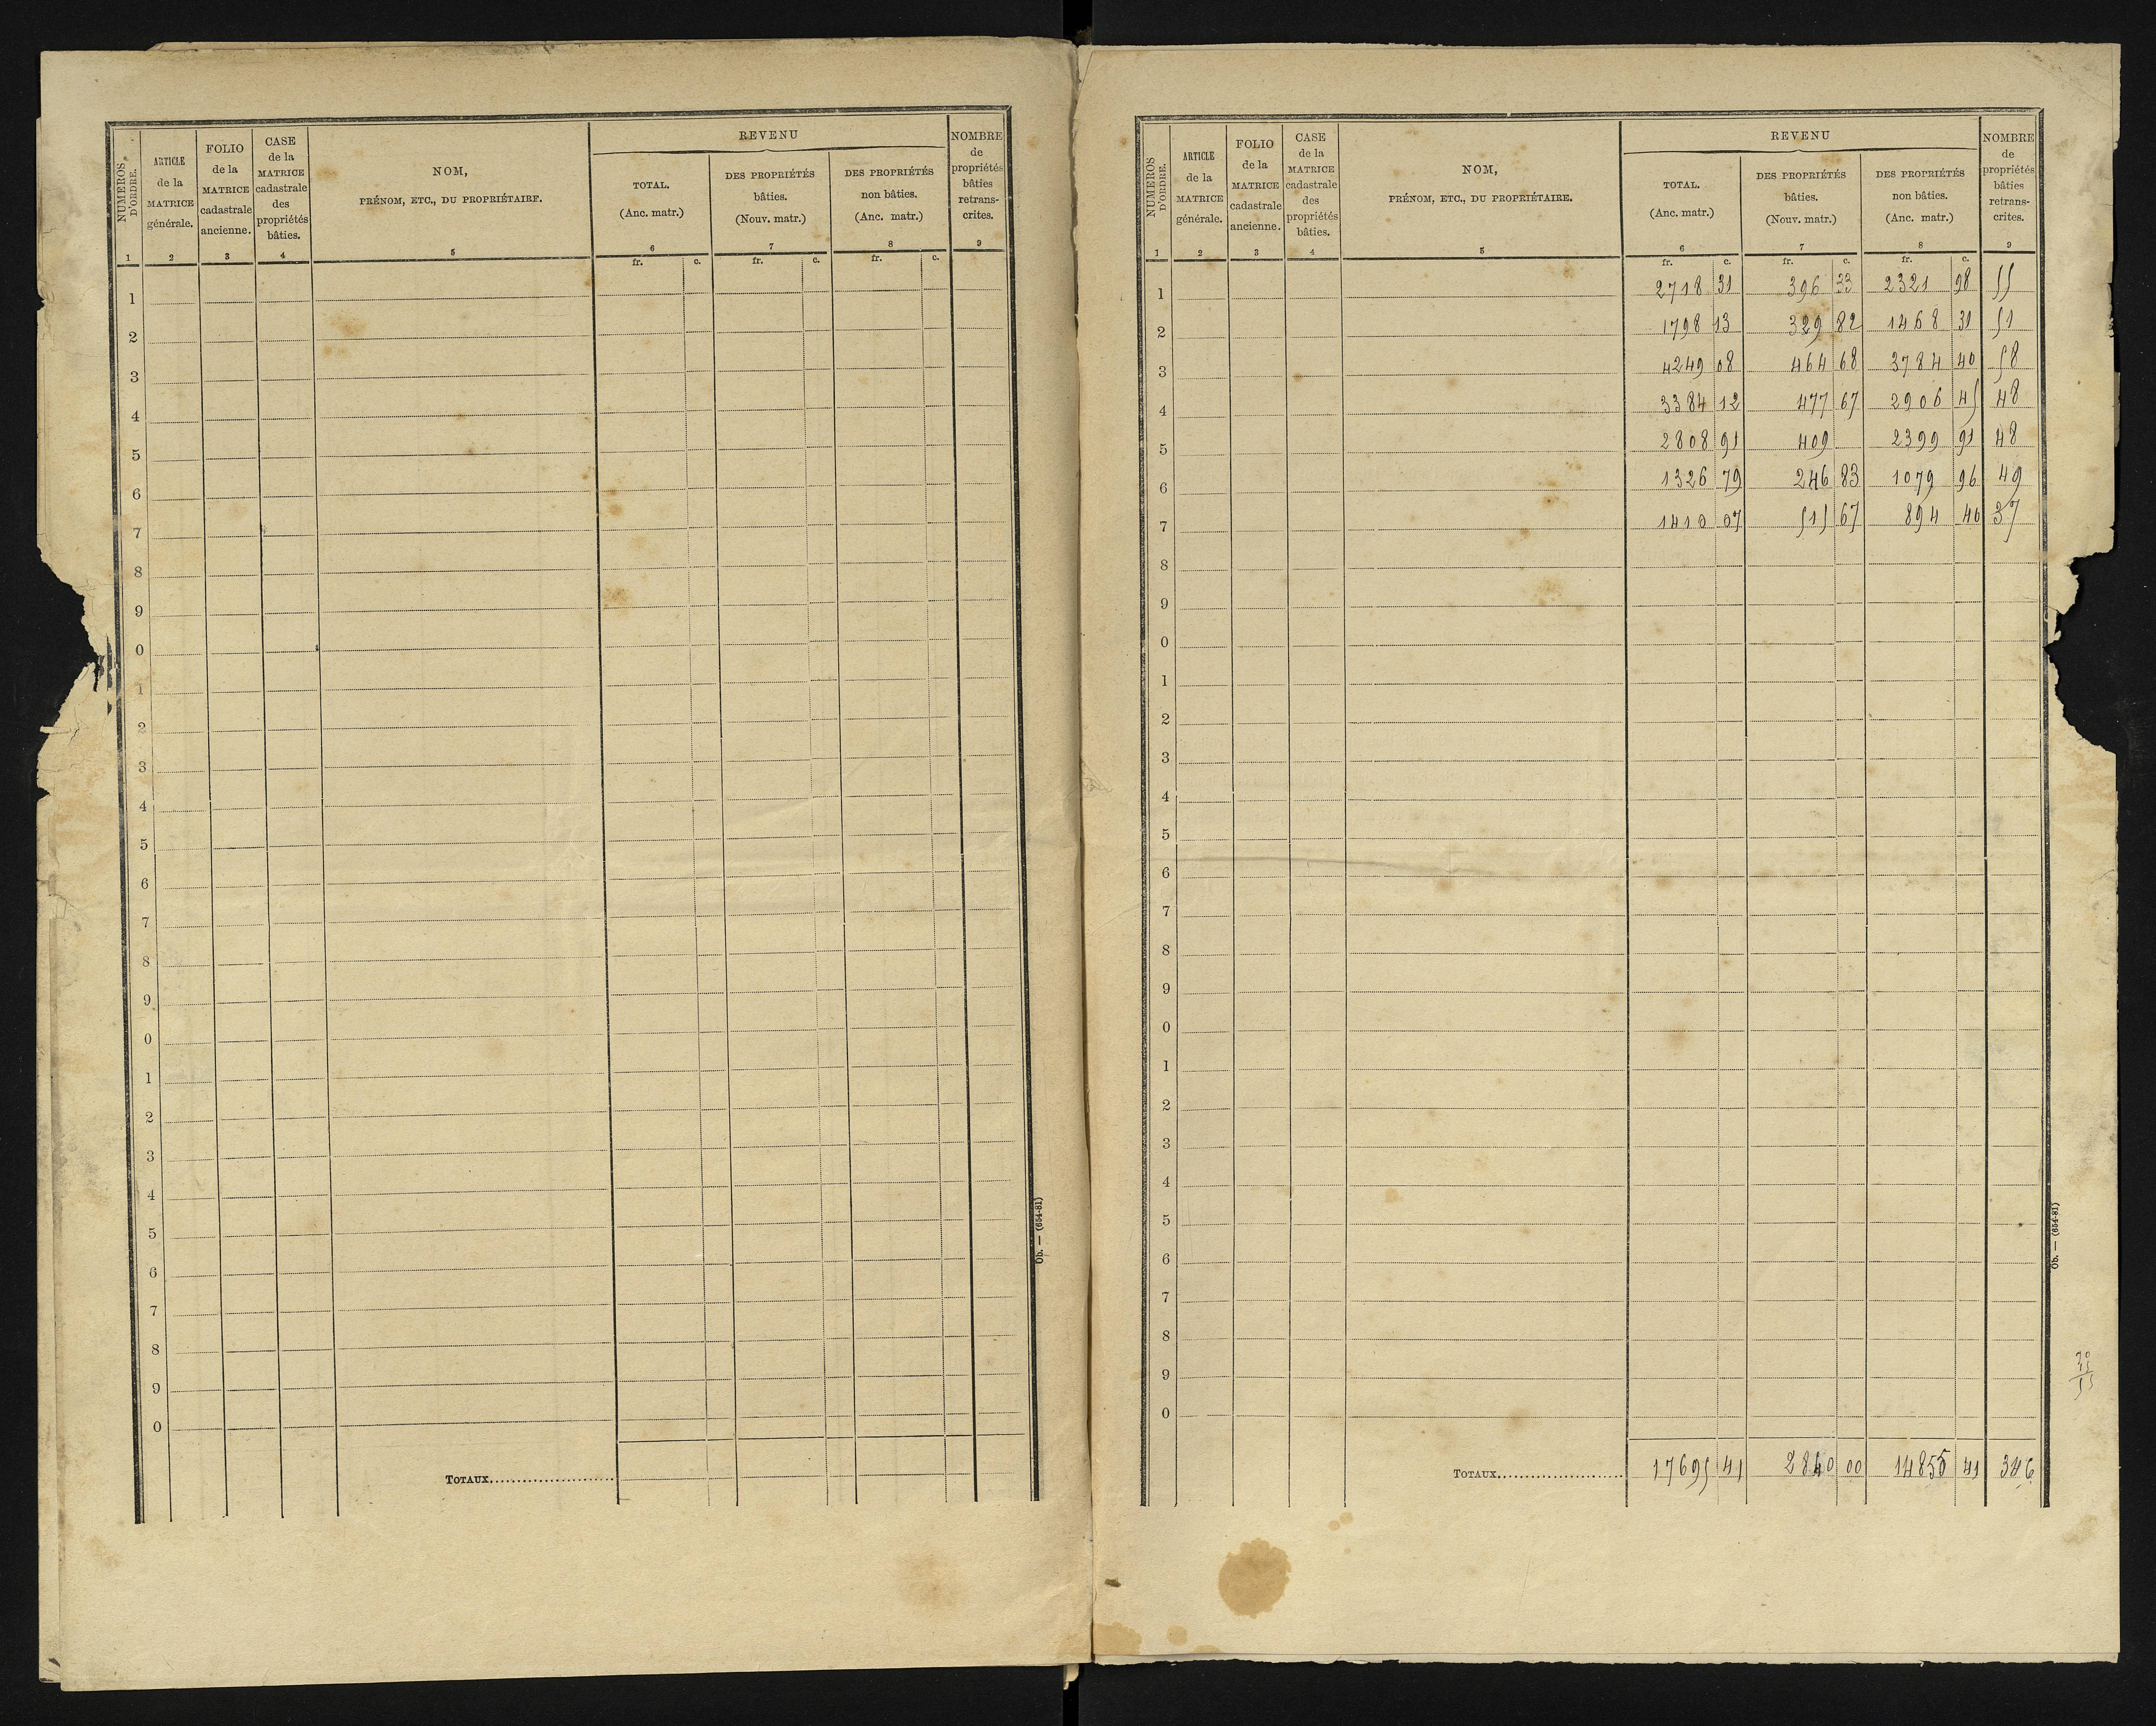 NUMÉROS D'ORDRE.
ARTICLE de la MATRICE générale.
FOLIO de la MATRICE cadastrale ancienne.
CASE de la MATRICE cadastrale des propriétés bâties.
NOM,
PRÉNOM, ETC., DU PROPRIÉTAIRE.
REVENU
TOTAL. (Anc. matr.)
DES PROPRIÉTÉS bâties. (Nouv. matr.)
DES PROPRIÉTÉS non bâties. (Anc. matr.)
NOMBRE de propriétés bâties retrans-crites.
1 2 3 4 5 6 7 8 9
fr. c. fr. c. fr. c.
1
2
3
4
5
6
7
8
9
0
1
2
3
4
5
6
7
8
9
0
1
2
3
4
5
6
7
8
9
0
TOTAUX
Ob. — (654-81)
NUMÉROS D'ORDRE.
ARTICLE de la MATRICE générale.
FOLIO de la MATRICE cadastrale ancienne.
CASE de la MATRICE cadastrale des propriétés bâties.
NOM,
PRÉNOM, ETC., DU PROPRIÉTAIRE.
REVENU
TOTAL. (Anc. matr.)
DES PROPRIÉTÉS bâties. (Nouv. matr.)
DES PROPRIÉTÉS non bâties. (Anc. matr.)
NOMBRE de propriétés bâties retrans-crites.
1 2 3 4 5 6 7 8 9
fr. c. fr. c. fr. c.
1 2718 31 396 33 2321 98 55
2 1798 13 329 82 1468 31 51
3 4249 08 464 68 3784 40 58
4 3384 12 477 67 2906 45 48
5 2808 91 409 2399 91 48
6 1326 79 246 83 1079 96 49
7 1410 07 515 67 894 40 37
8
9
0
1
2
3
4
5
6
7
8
9
0
1
2
3
4
5
6
7
8
9
0
TOTAUX 17695 41 2840 00 14855 41 346
Ob. — (654-81)